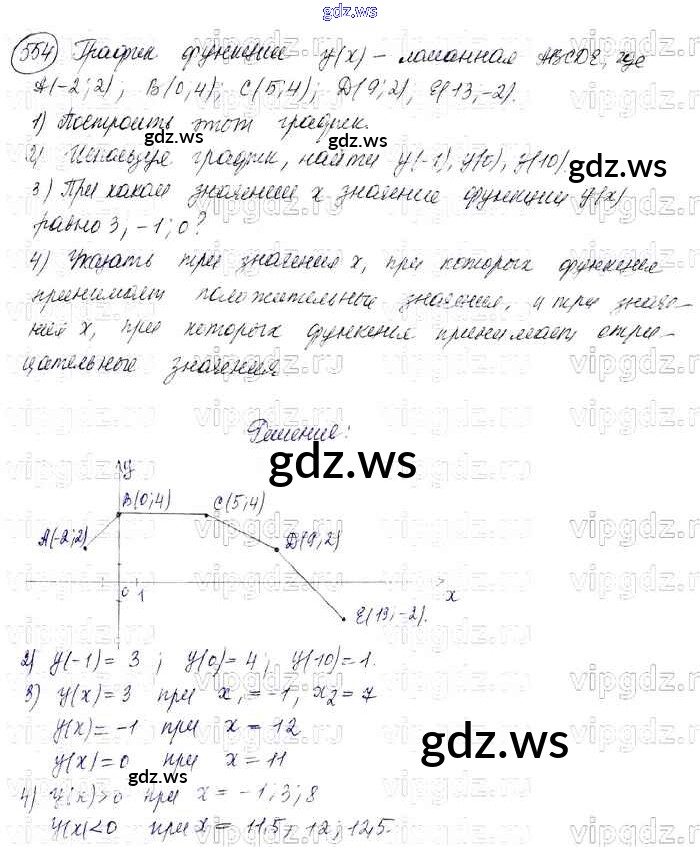 gdz.ws
554) График функции y(x) – ломанная ABCDE, где
A(-2;2); B(0;4); C(5;4); D(9;2); E(13,-2).
1) Построить этот график.
2) Используя график, найти y(-1), y(0), y(10).
gdz.ws
3) При каком значении x значение функции y(x)
равно 3, -1; 0?
4) Указать три значения x, при которых функция
принимает положительные значения, и три значе-
ния x, при которых функция принимает отри-
цательные значения
Решение:
gdz.ws
y
B(0;4) C(5;4)
A(-2;2) D(9;2)
0 1 x
E(13,-2).
2) y(-1) = 3; y(0) = 4; y(10) = 1.
3) y(x) = 3 при x₁ = -1, x₂ = 7
y(x) = -1 при x = 12
gdz.ws
y(x) = 0 при x = 11
gdz.ws
4) y(x)>0 при x = -1; 3; 8
y(x)<0 при x = 11,5; 12; 12,5.
vipgdz.ru